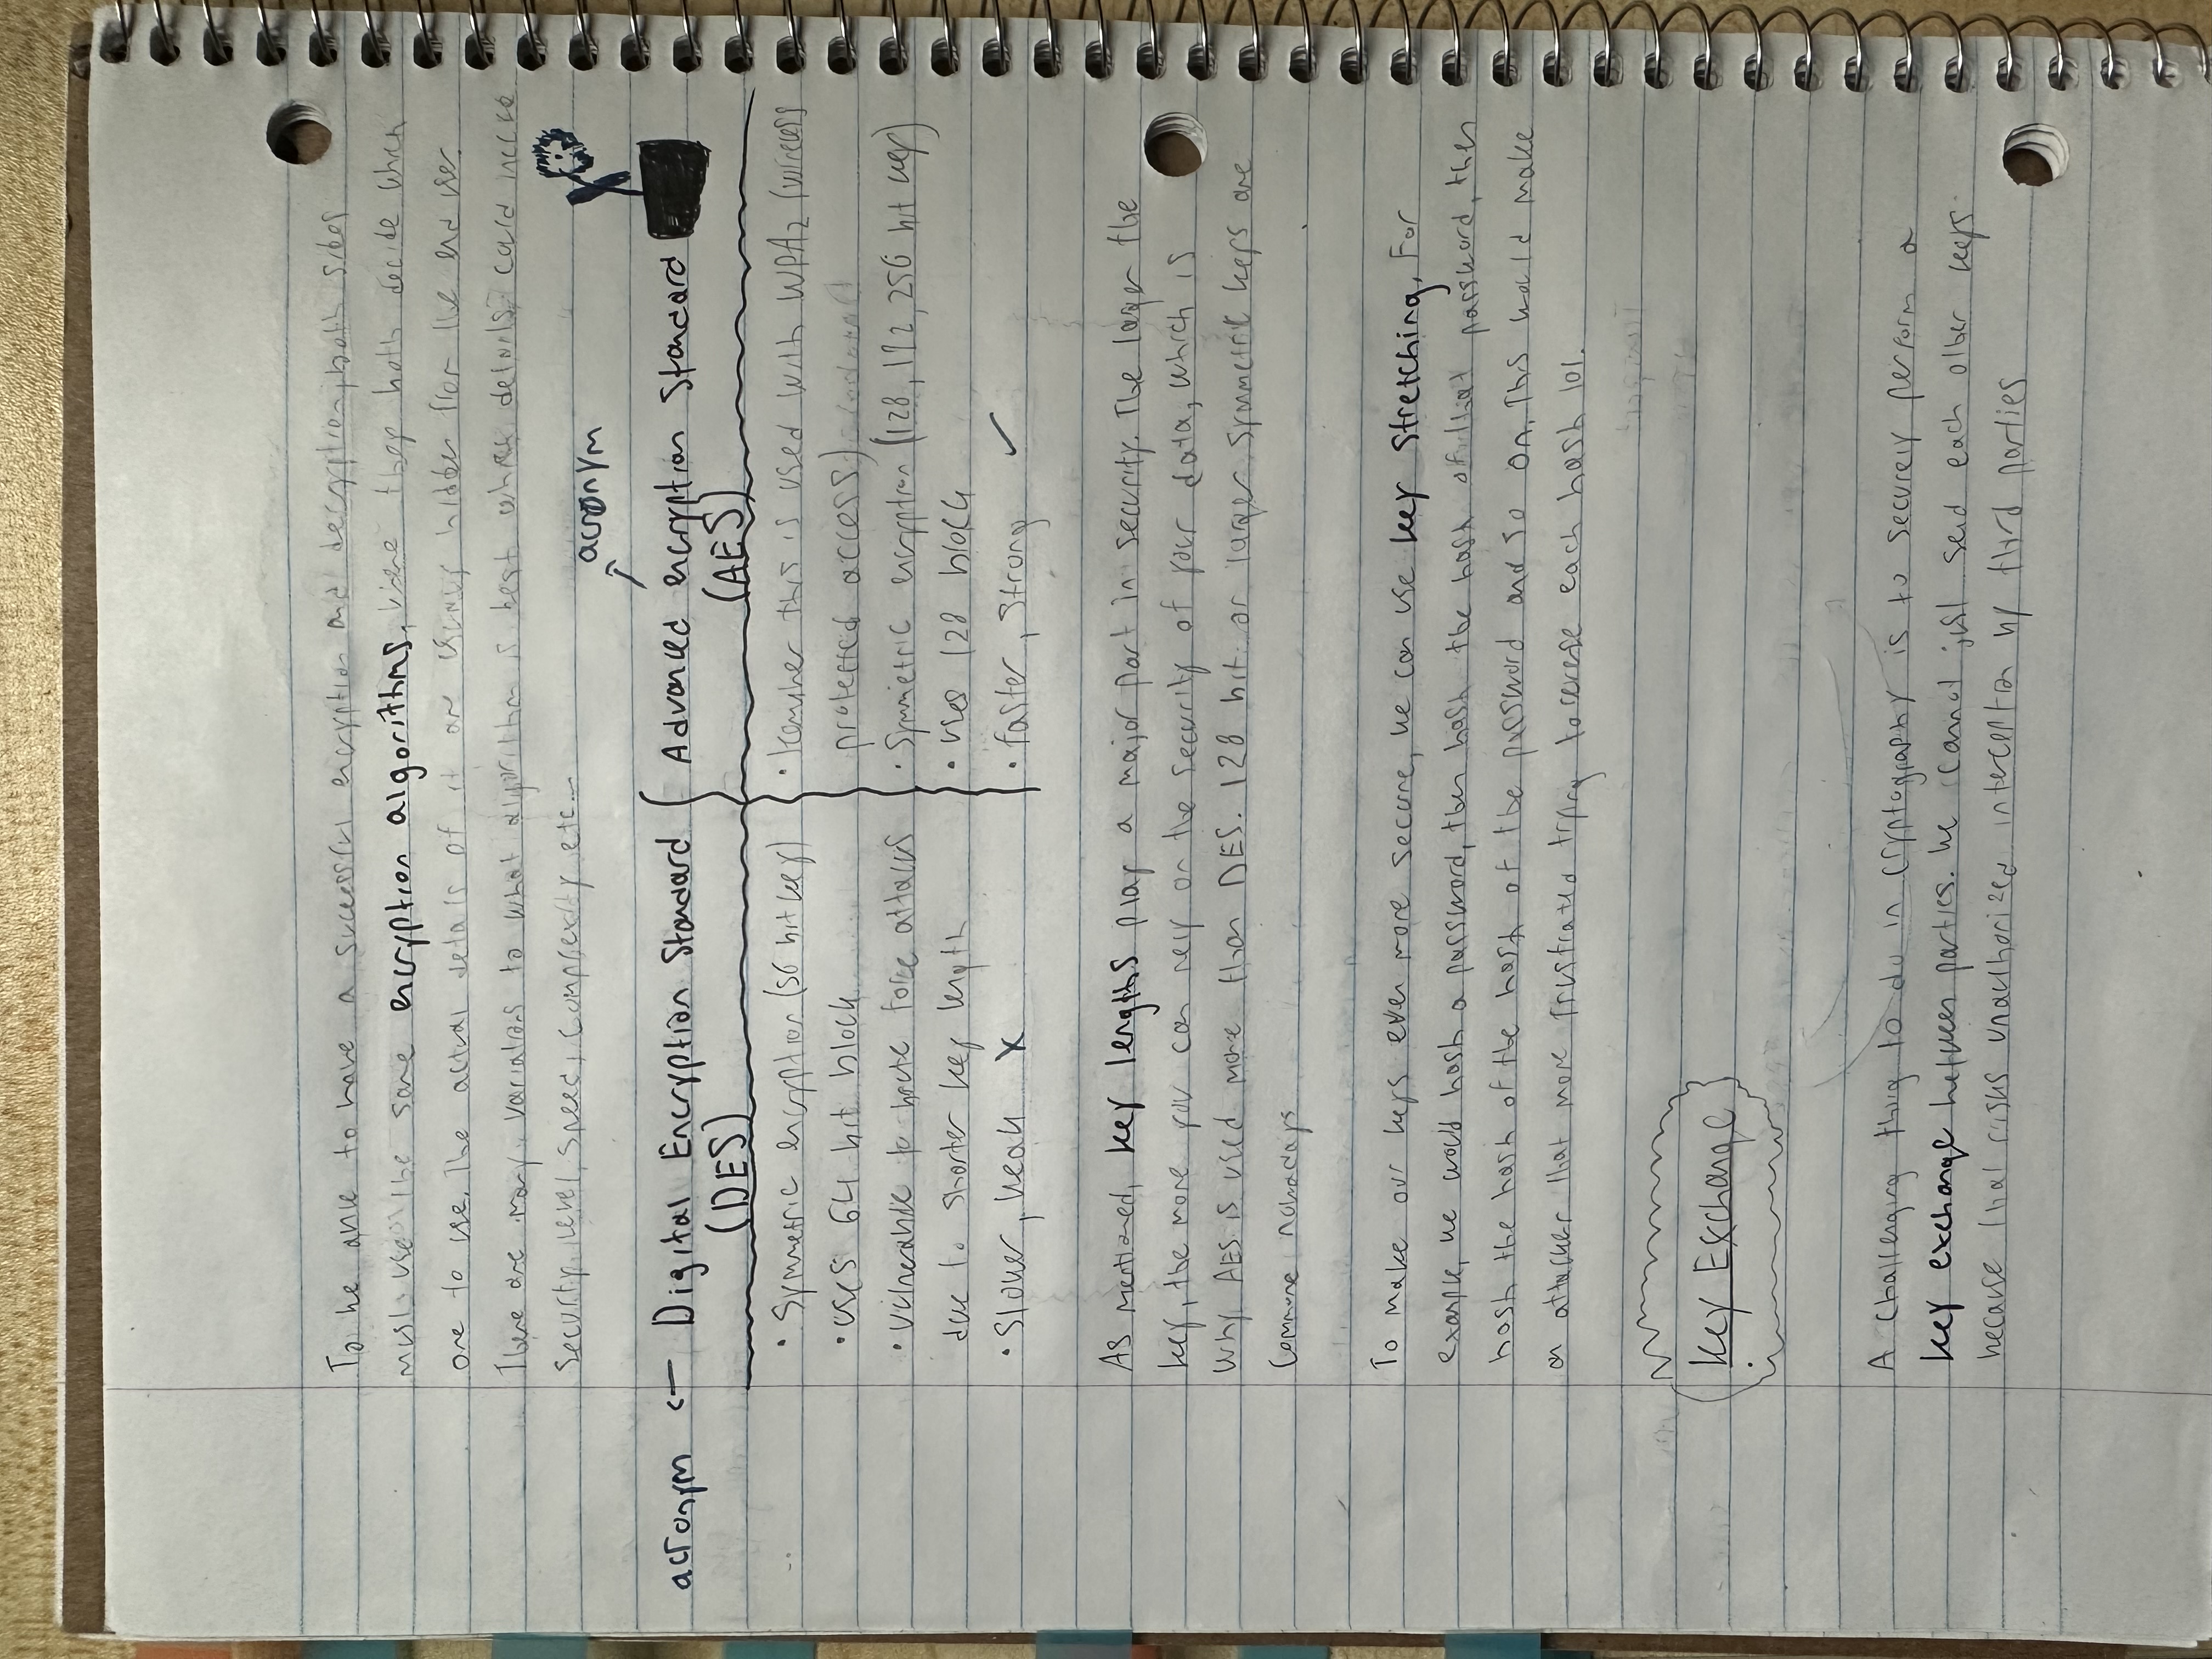 To be able to have a successful encryption and decryption, both sides
must use the same encryption algorithms, where they both decide which
one to use. The actual details of it are usually hidden from the end user.
There are many variations to what algorithm is best whose details could include
security level, speed, complexity etc...
acronym
acronym <- Digital Encryption Standard Advanced encryption Standard
(DES) (AES)
• Symmetric encryption (56 bit key)
• uses 64 bit block
• vulnerable to brute force attacks
due to shorter key length
• Slower, weak X
• Remember this is used with WPA2 (wireless
protected access)
• Symmetric encryption (128, 192, 256 bit key)
• uses 128 block
• faster, strong ✓
As mentioned, key lengths play a major part in security. The larger the
key, the more you can rely on the security of your data, which is
why AES is used more than DES. 128 bit or larger symmetric keys are
commone nowadays
To make our keys even more secure, we can use key stretching. For
example, we would hash a password, then hash the hash of that password, then
hash the hash of the hash of the password and so on. This would make
an attacker that more frustrated trying to reverse each hash lol.
Key Exchange
A challenging thing to do in cryptography is to securely perform a
key exchange between parties. We cannot just send each other keys
because that risks unauthorized interception by third parties